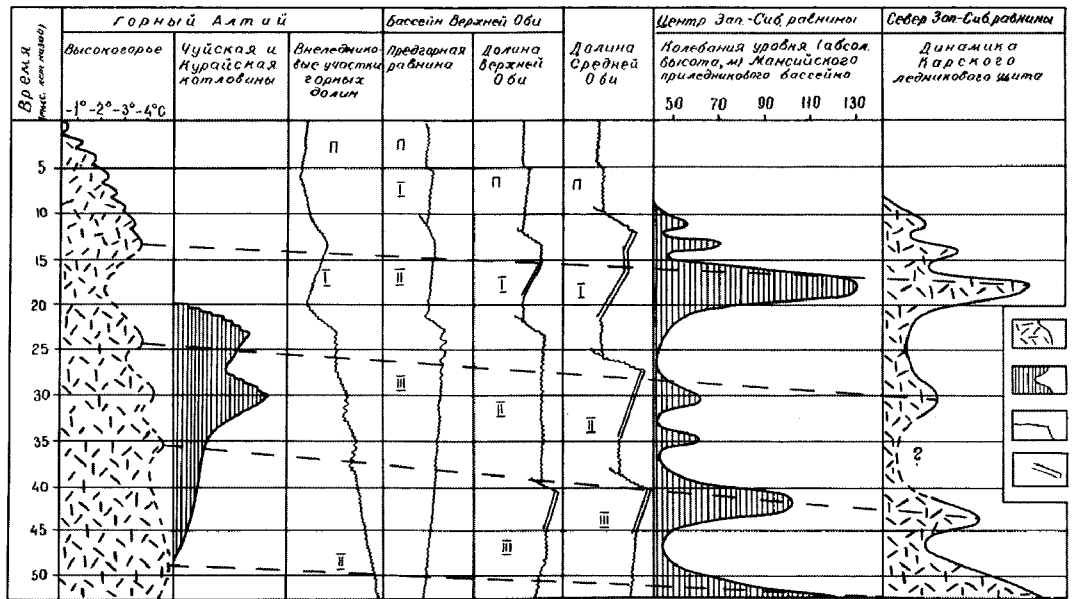 Время
(тыс. лет назад)
Горный Алтай
Высокогорье
-1° -2° -3° -4°С
Чуйская и
Курайская
котловины
Внеледнико-
вые участки
горных
долин
Бассейн Верхней Оби
Предгорная
равнина
Долина
Верхней
Оби
Долина
Средней
Оби
Центр Зап.-Сиб. равнины
Колебания уровня (абсол.
высота, м) Мансийского
приледникового бассейна
50 70 90 110 130
Север Зап.-Сиб. равнины
Динамика
Карского
ледникового щита
П П
5
П П
I
10
15
I II I I
20
25
30
III
II
II
35
?
40
III
45
III
50
II